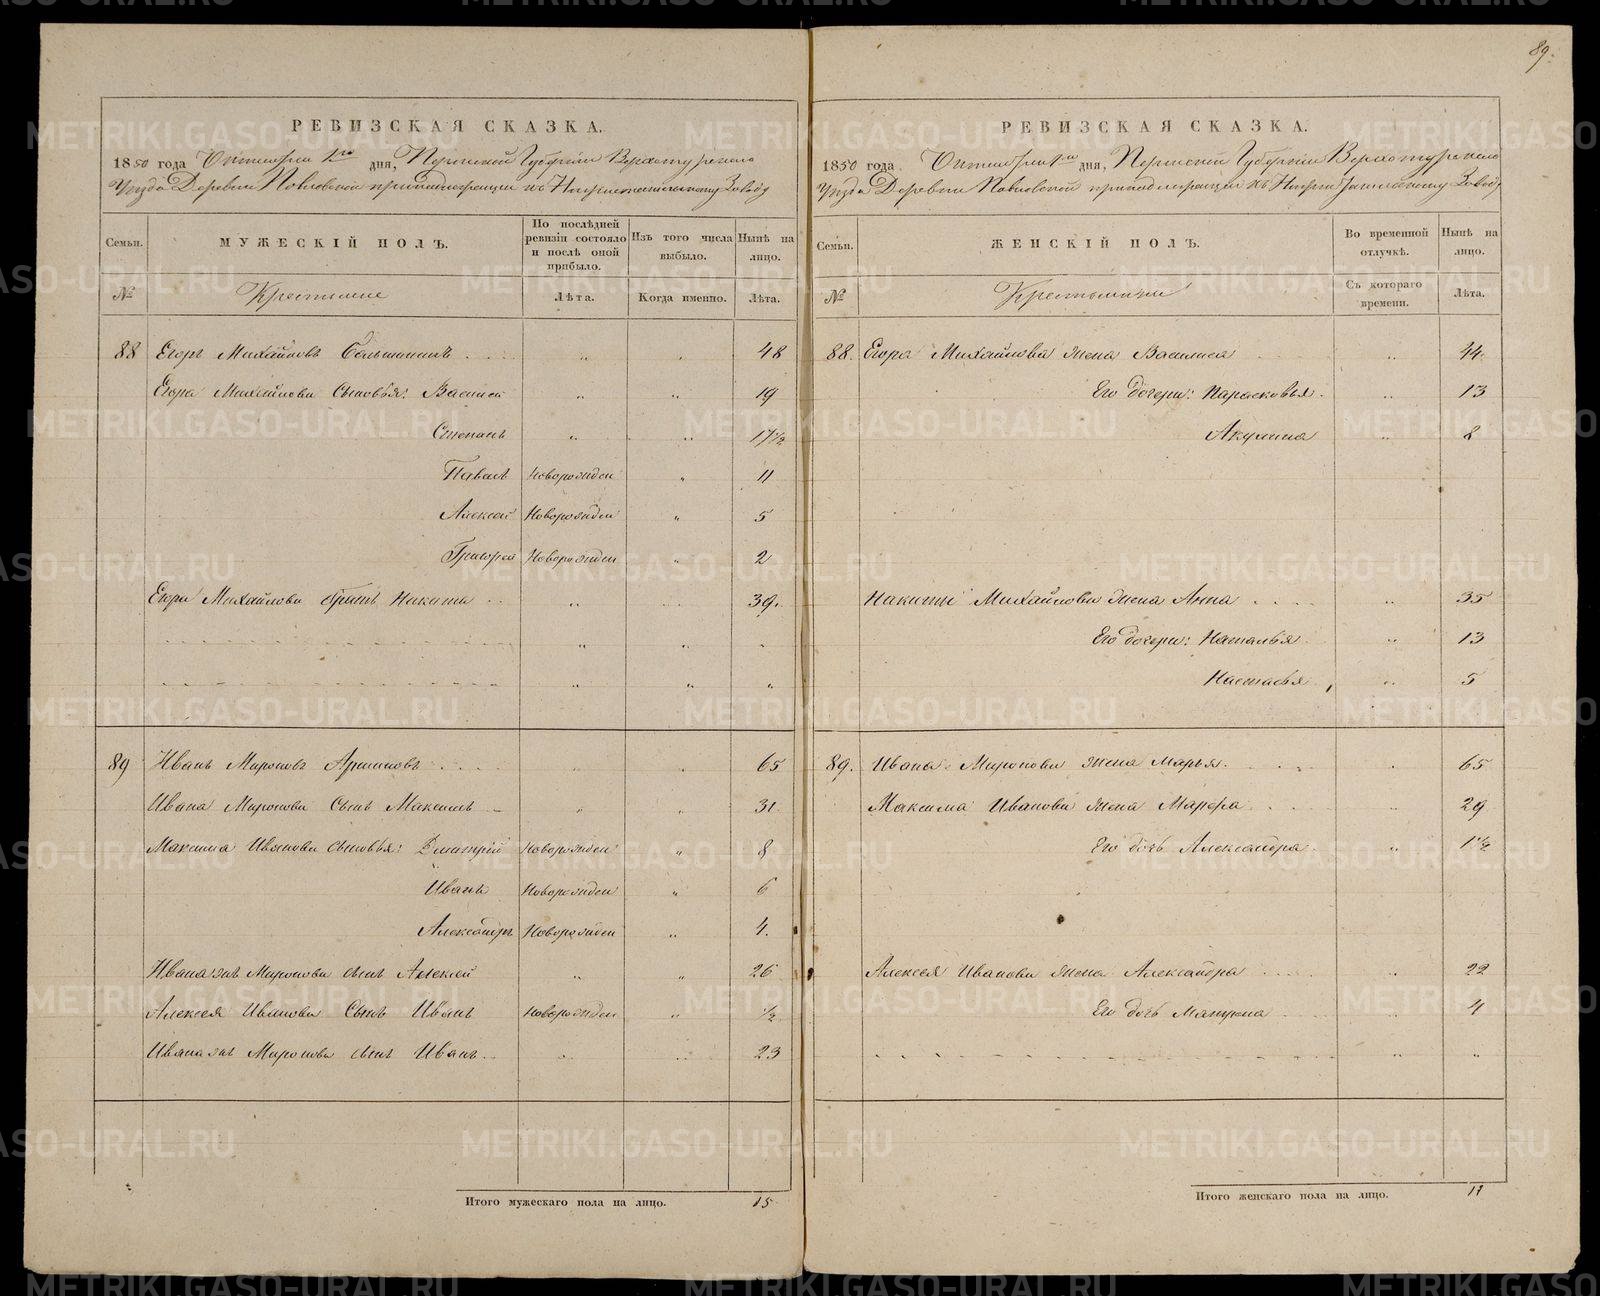 89.
РЕВИЗСКАЯ СКАЗКА.
1850 года Октября 1го дня, Пермской Губернии Верхотурскаго
Уезда Деревни Павловской принадлежащей къ Нижнетагильскому Заводу
Семьи.
МУЖЕСКІЙ ПОЛЪ.
По послѣдней ревизіи состояло и послѣ оной прибыло.
Изъ того числа выбыло.
Нынѣ на лицо.
№
Крестьяне
Лѣта.
Когда именно.
Лѣта.
88 Егоръ Михайловъ 48
Егора Михайлова Сыновья: Василей 19
Степанъ 17 1/2
Павелъ Новорожден 11
Алексей Новорожден 5
Григорей Новорожден 2
Егора Михайлова братъ Никита 39.
89 Иванъ Мироновъ 65
Ивана Миронова Сынъ Максимъ 31
Максима Иванова сыновья: Дмитрей Новорожден 8
Иванъ Новорожден 6
Александръ Новорожден 4.
Ивана же Миронова сынъ Алексей 26
Алексея Иванова Сынъ Иванъ Новорожден 1/2
Ивана же Миронова сынъ Иванъ 23
Итого мужескаго пола на лицо. 15
РЕВИЗСКАЯ СКАЗКА.
1850 года Октября 1го дня, Пермской Губернии Верхотурскаго
Уезда Деревни Павловской принадлежащей къ Заводу
Семьи.
ЖЕНСКІЙ ПОЛЪ.
Во временной отлучкѣ.
Нынѣ на лицо.
№
Крестьянки
Съ котораго времени.
Лѣта.
88. Егора Михайлова жена Василиса 44.
Его дочери: Парасковья 13
Акулина 8
Никиты Михайлова жена Анна 35
Его дочери: Наталья 13
Настасья 5
89. Ивана Миронова жена Марья. 65
Максима Иванова жена Марфа 29
Его дочь Александра 1 1/2
Алексея Иванова жена Александра 22
Его дочь Матрена 4
Итого женскаго пола на лицо. 11
METRIKI.GASO-URAL.RU